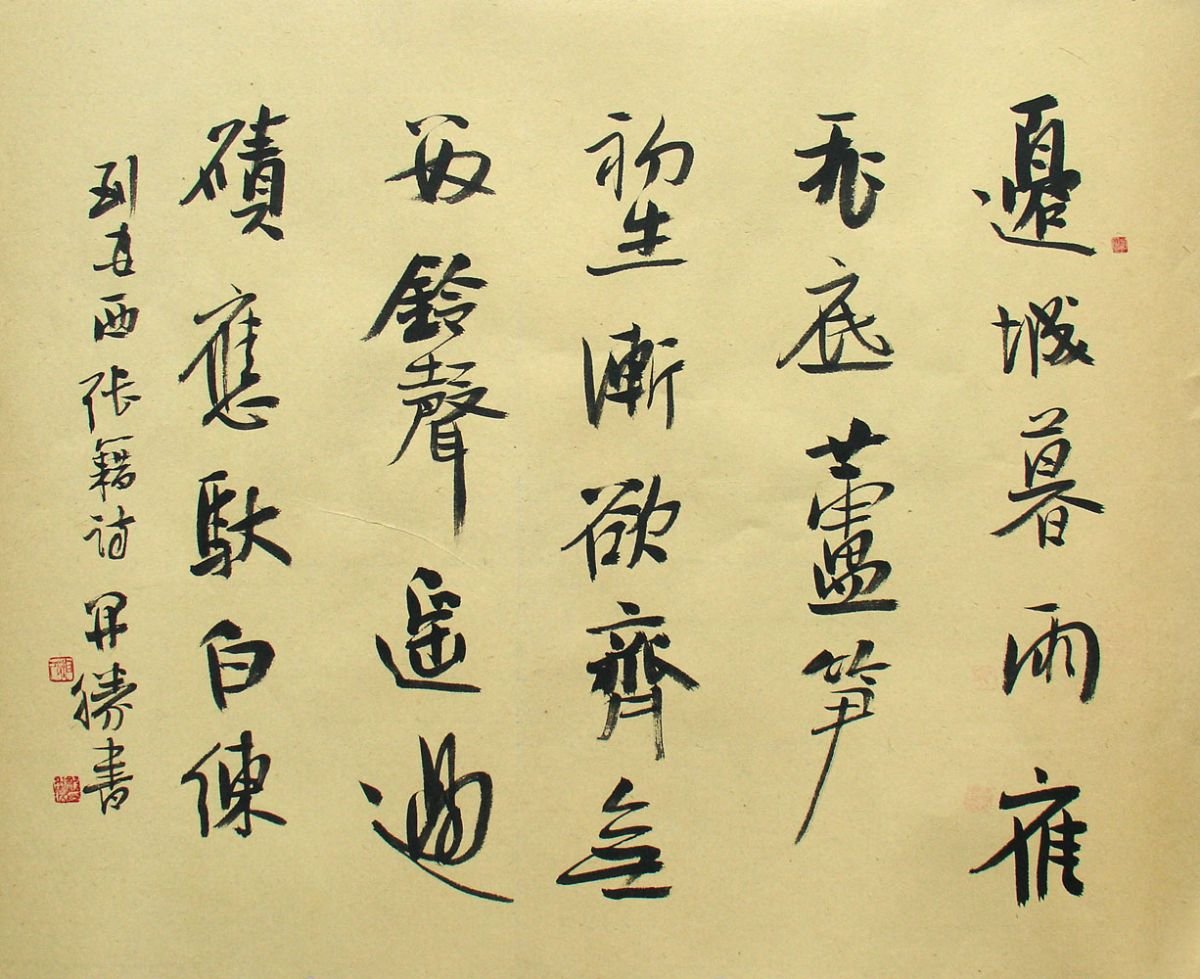 邊城暮雨雁
飛底蘆笋
初生漸欲齊無
數鈴聲遥過
磧應馱白練
到安西 張籍詩 勝書